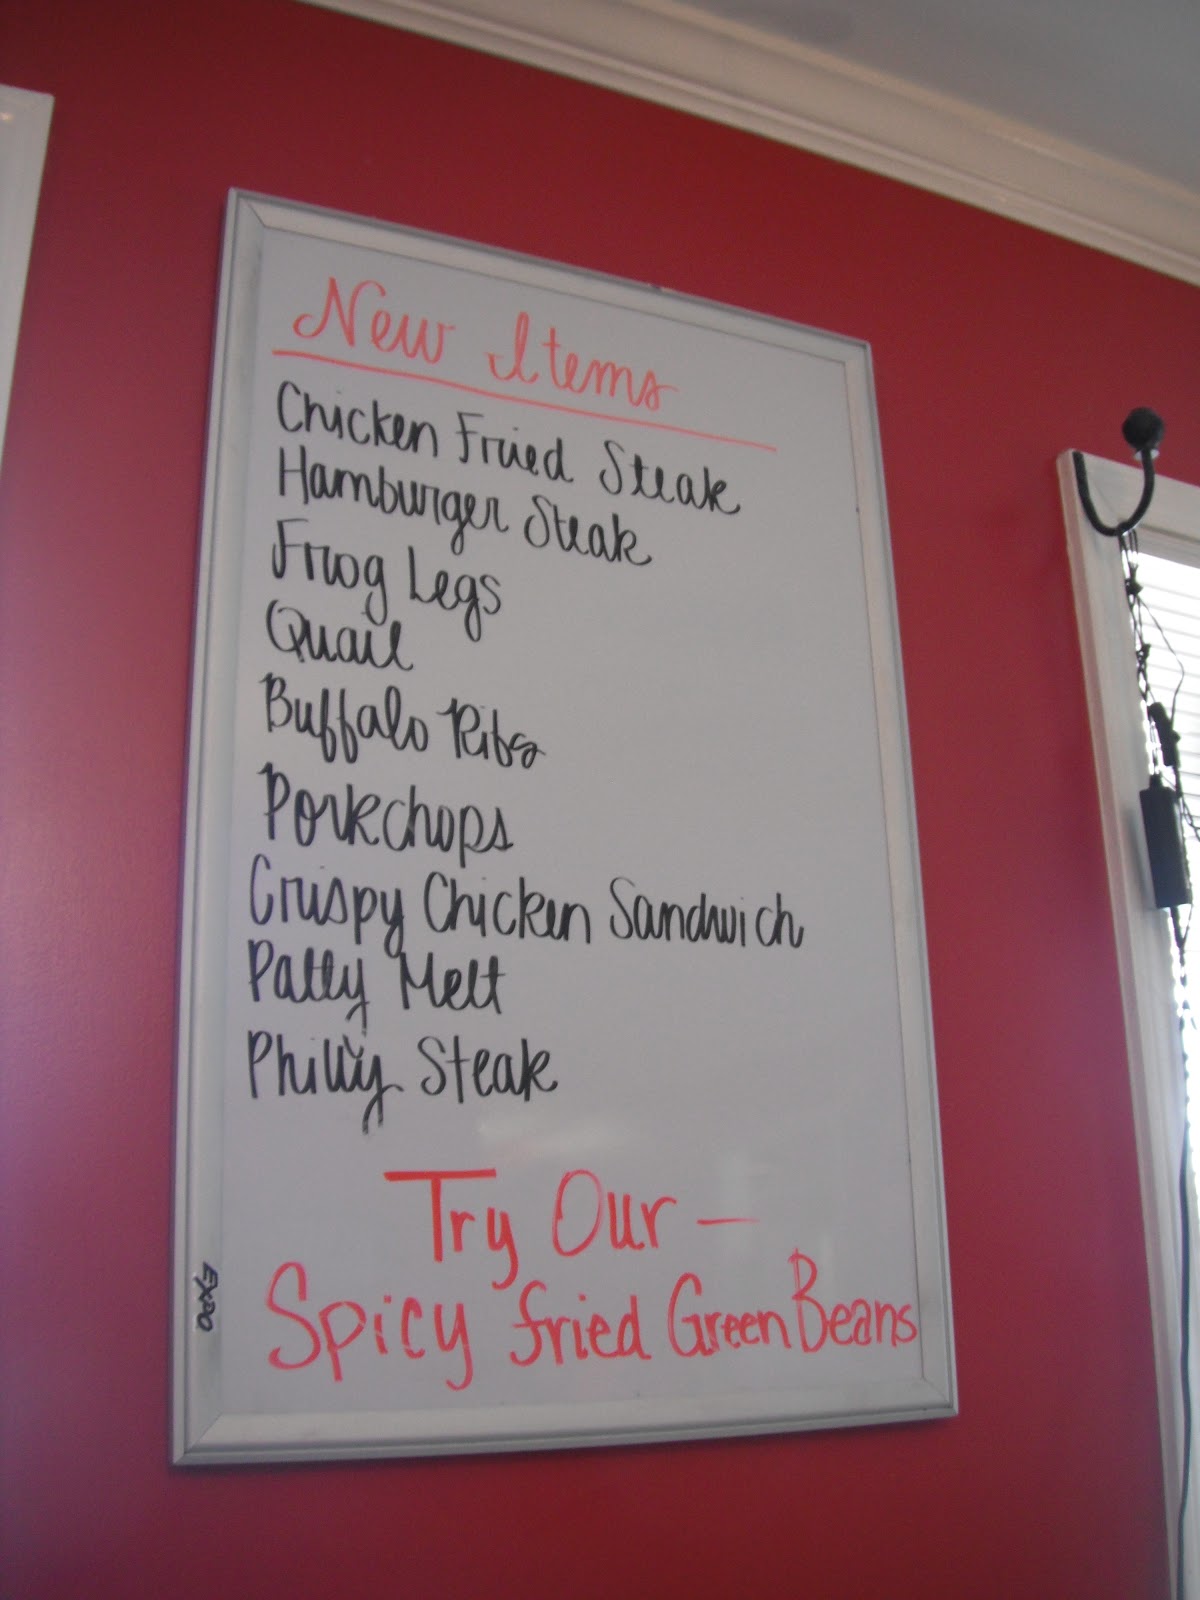 New Items
Chicken Fried Steak
Hamburger Steak
Frog Legs
Quail
Buffalo Ribs
Porkchops
Crispy Chicken Sandwich
Patty Melt
Philly Steak
Try Our —
Spicy fried Green Beans
EXPO